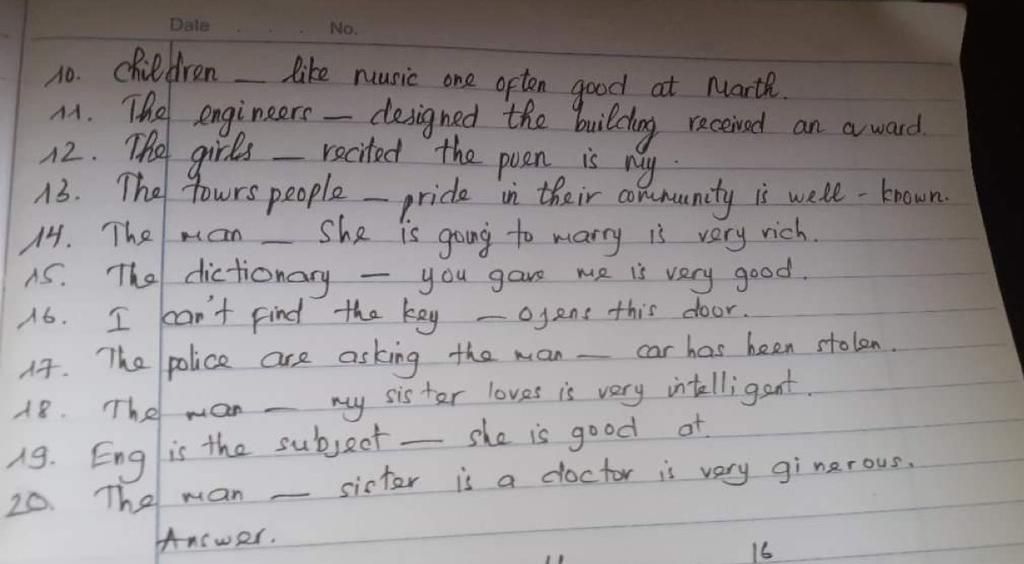 Date . . . No.
10. Children — like music one often good at Marth.
11. The engineers — designed the building received an award.
12. The girls — recited the poen is my.
13. The towrs people — pride in their community is well - known.
14. The man — She is going to marry is very rich.
15. The dictionary — you gave me is very good.
16. I can't find the key — opens this door.
17. The police are asking the man — car has been stolen.
18. The man — my sister loves is very intelligent.
19. Eng is the subject — she is good at.
20. The man — sister is a doctor is very ginerous.
Answer.
16